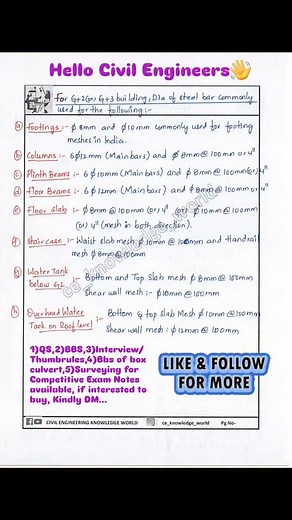 Hello Civil Engineers👋
For G+2(or) G+3 building, Dia of steel bar commonly
used for the following:-
(a) Footings :- ϕ 8mm and ϕ10mm commonly used for footing
meshes in India.
(b) Columns :- 6ϕ12mm (Main bars) and ϕ 8mm@ 100mm or 4"
(c) Plinth Beams :- 6 ϕ10mm (Main bars) and ϕ 8mm@100mm (or) 4"
(d) Floor Beams :- 6 ϕ12mm (Main bars) and ϕ8mm@ 100mm or 4"
(e) Floor Slab :- ϕ8mm@ 100mm (or) 4" (or) ϕ10mm@ 100mm
(or) 4" (mesh in both direction).
(f) Staircase :- Waist slab mesh ϕ10mm@ 100mm and Handrail
mesh ϕ8mm@ 100mm
(g) Water Tank :- Bottom and Top slab mesh ϕ8mm@ 100mm
below GL Shear wall mesh :- ϕ10mm@ 100mm
(h) Overhead Water :- Bottom & top slab Mesh ϕ10mm@ 100mm
Tank on Roof level Shear wall mesh :- ϕ12mm @ 100mm
ce_knowledge_world
1)QS,2)BBS,3)Interview/
Thumbrules,4)Bbs of box
culvert,5)Surveying for
Competitive Exam Notes
available, if interested to
buy, Kindly DM...
LIKE & FOLLOW
FOR MORE
CIVIL ENGINEERING KNOWLEDGE WORLD ce_knowledge_world Pg.No-